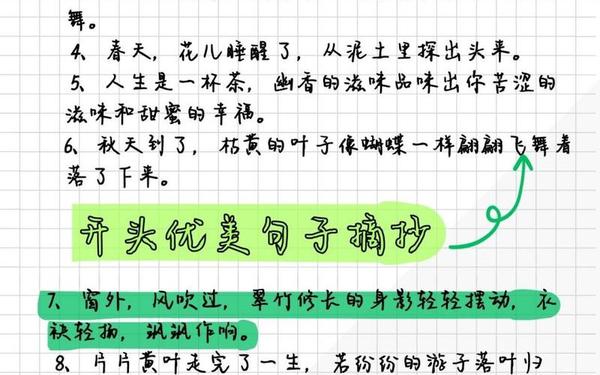 舞。
4、春天，花儿睡醒了，从泥土里探出头来。
5、人生是一杯茶，幽香的滋味品味出你苦涩的
滋味和甜蜜的幸福。
6、秋天到了，枯黄的叶子像蝴蝶一样翩翩飞舞着
落了下来。
开头优美句子摘抄
7、窗外，风吹过，翠竹修长的身影轻轻摆动，衣
袂轻扬，飒飒作响。
8、片片黄叶走完了一生，若纷纷的游子落叶归